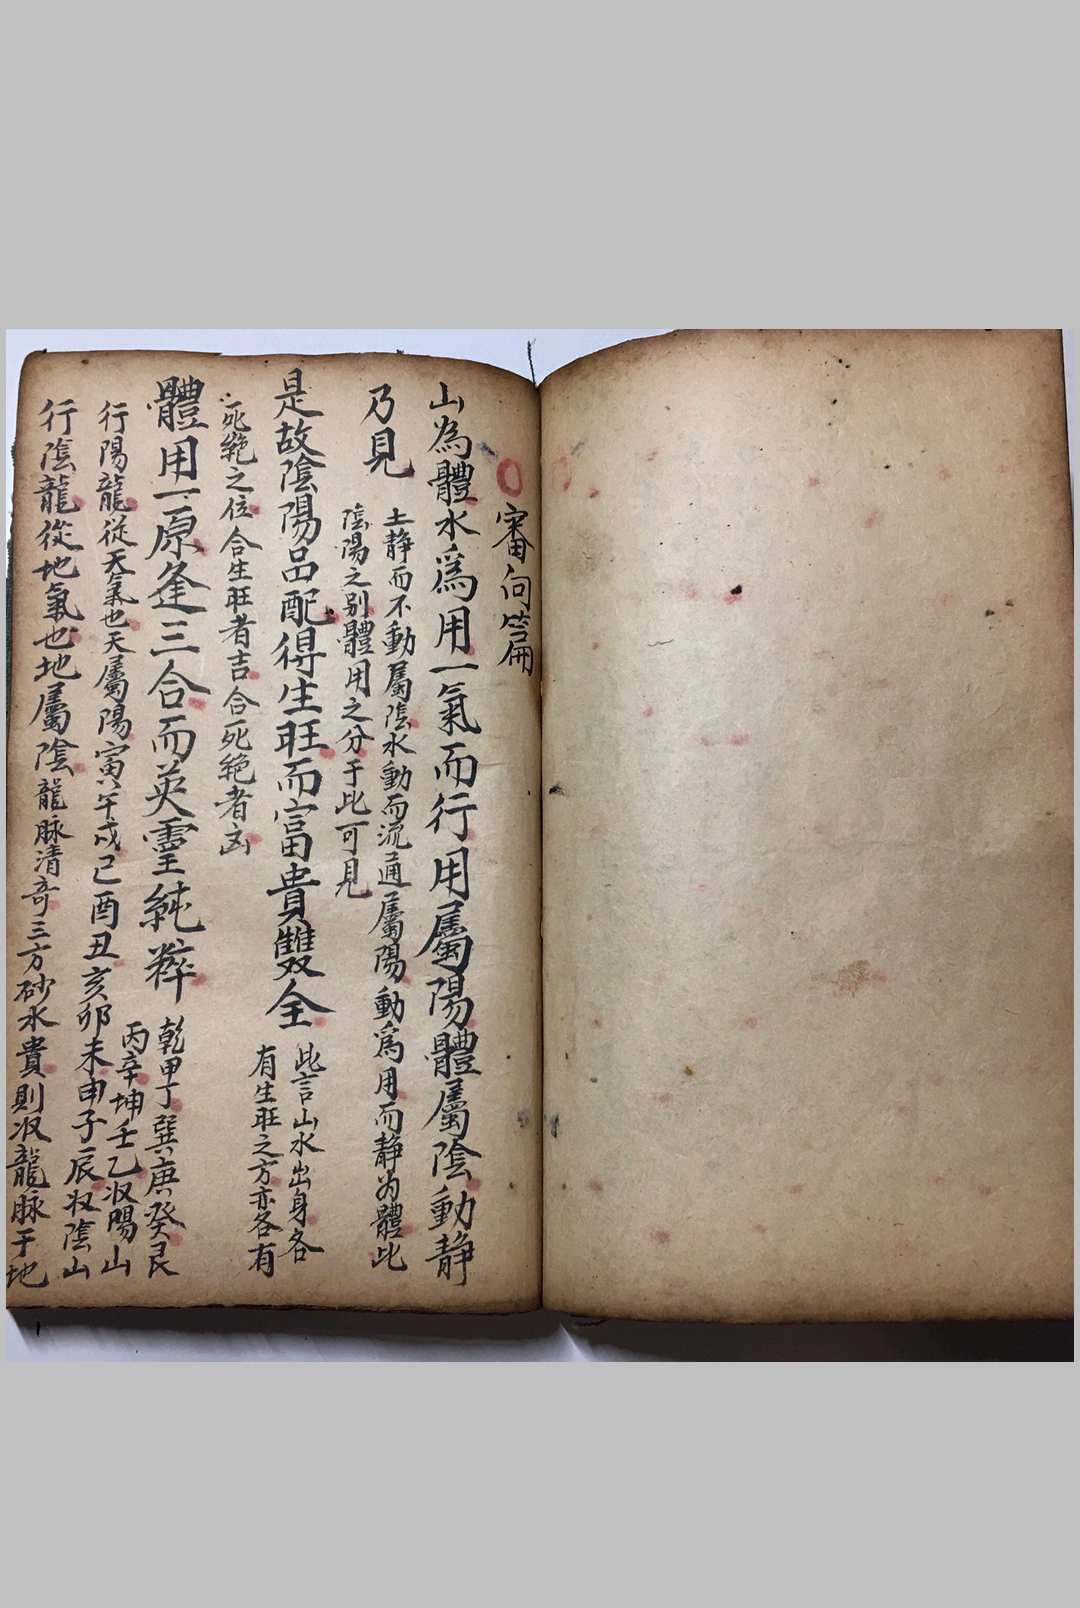 審向篇
山為體水爲用一氣而行用屬陽體屬陰動静
乃見
土静而不動屬陰水動而流通屬陽動爲用而静为體此
陰陽之别體用之分于此可見
是故陰陽品配得生旺而富貴雙全
此言山水出身各
有生旺之方亦各有
死絶之位合生旺者吉合死絶者凶
體用一原逢三合而英靈純粹
乾甲丁巽庚癸艮
丙辛坤壬乙収陽山
行陽龍從天氣也天屬陽寅午戍巳酉丑亥卯未申子辰収陰山
行陰龍從地氣也地屬陰龍脉清奇三方砂水貴則収龍脉于地